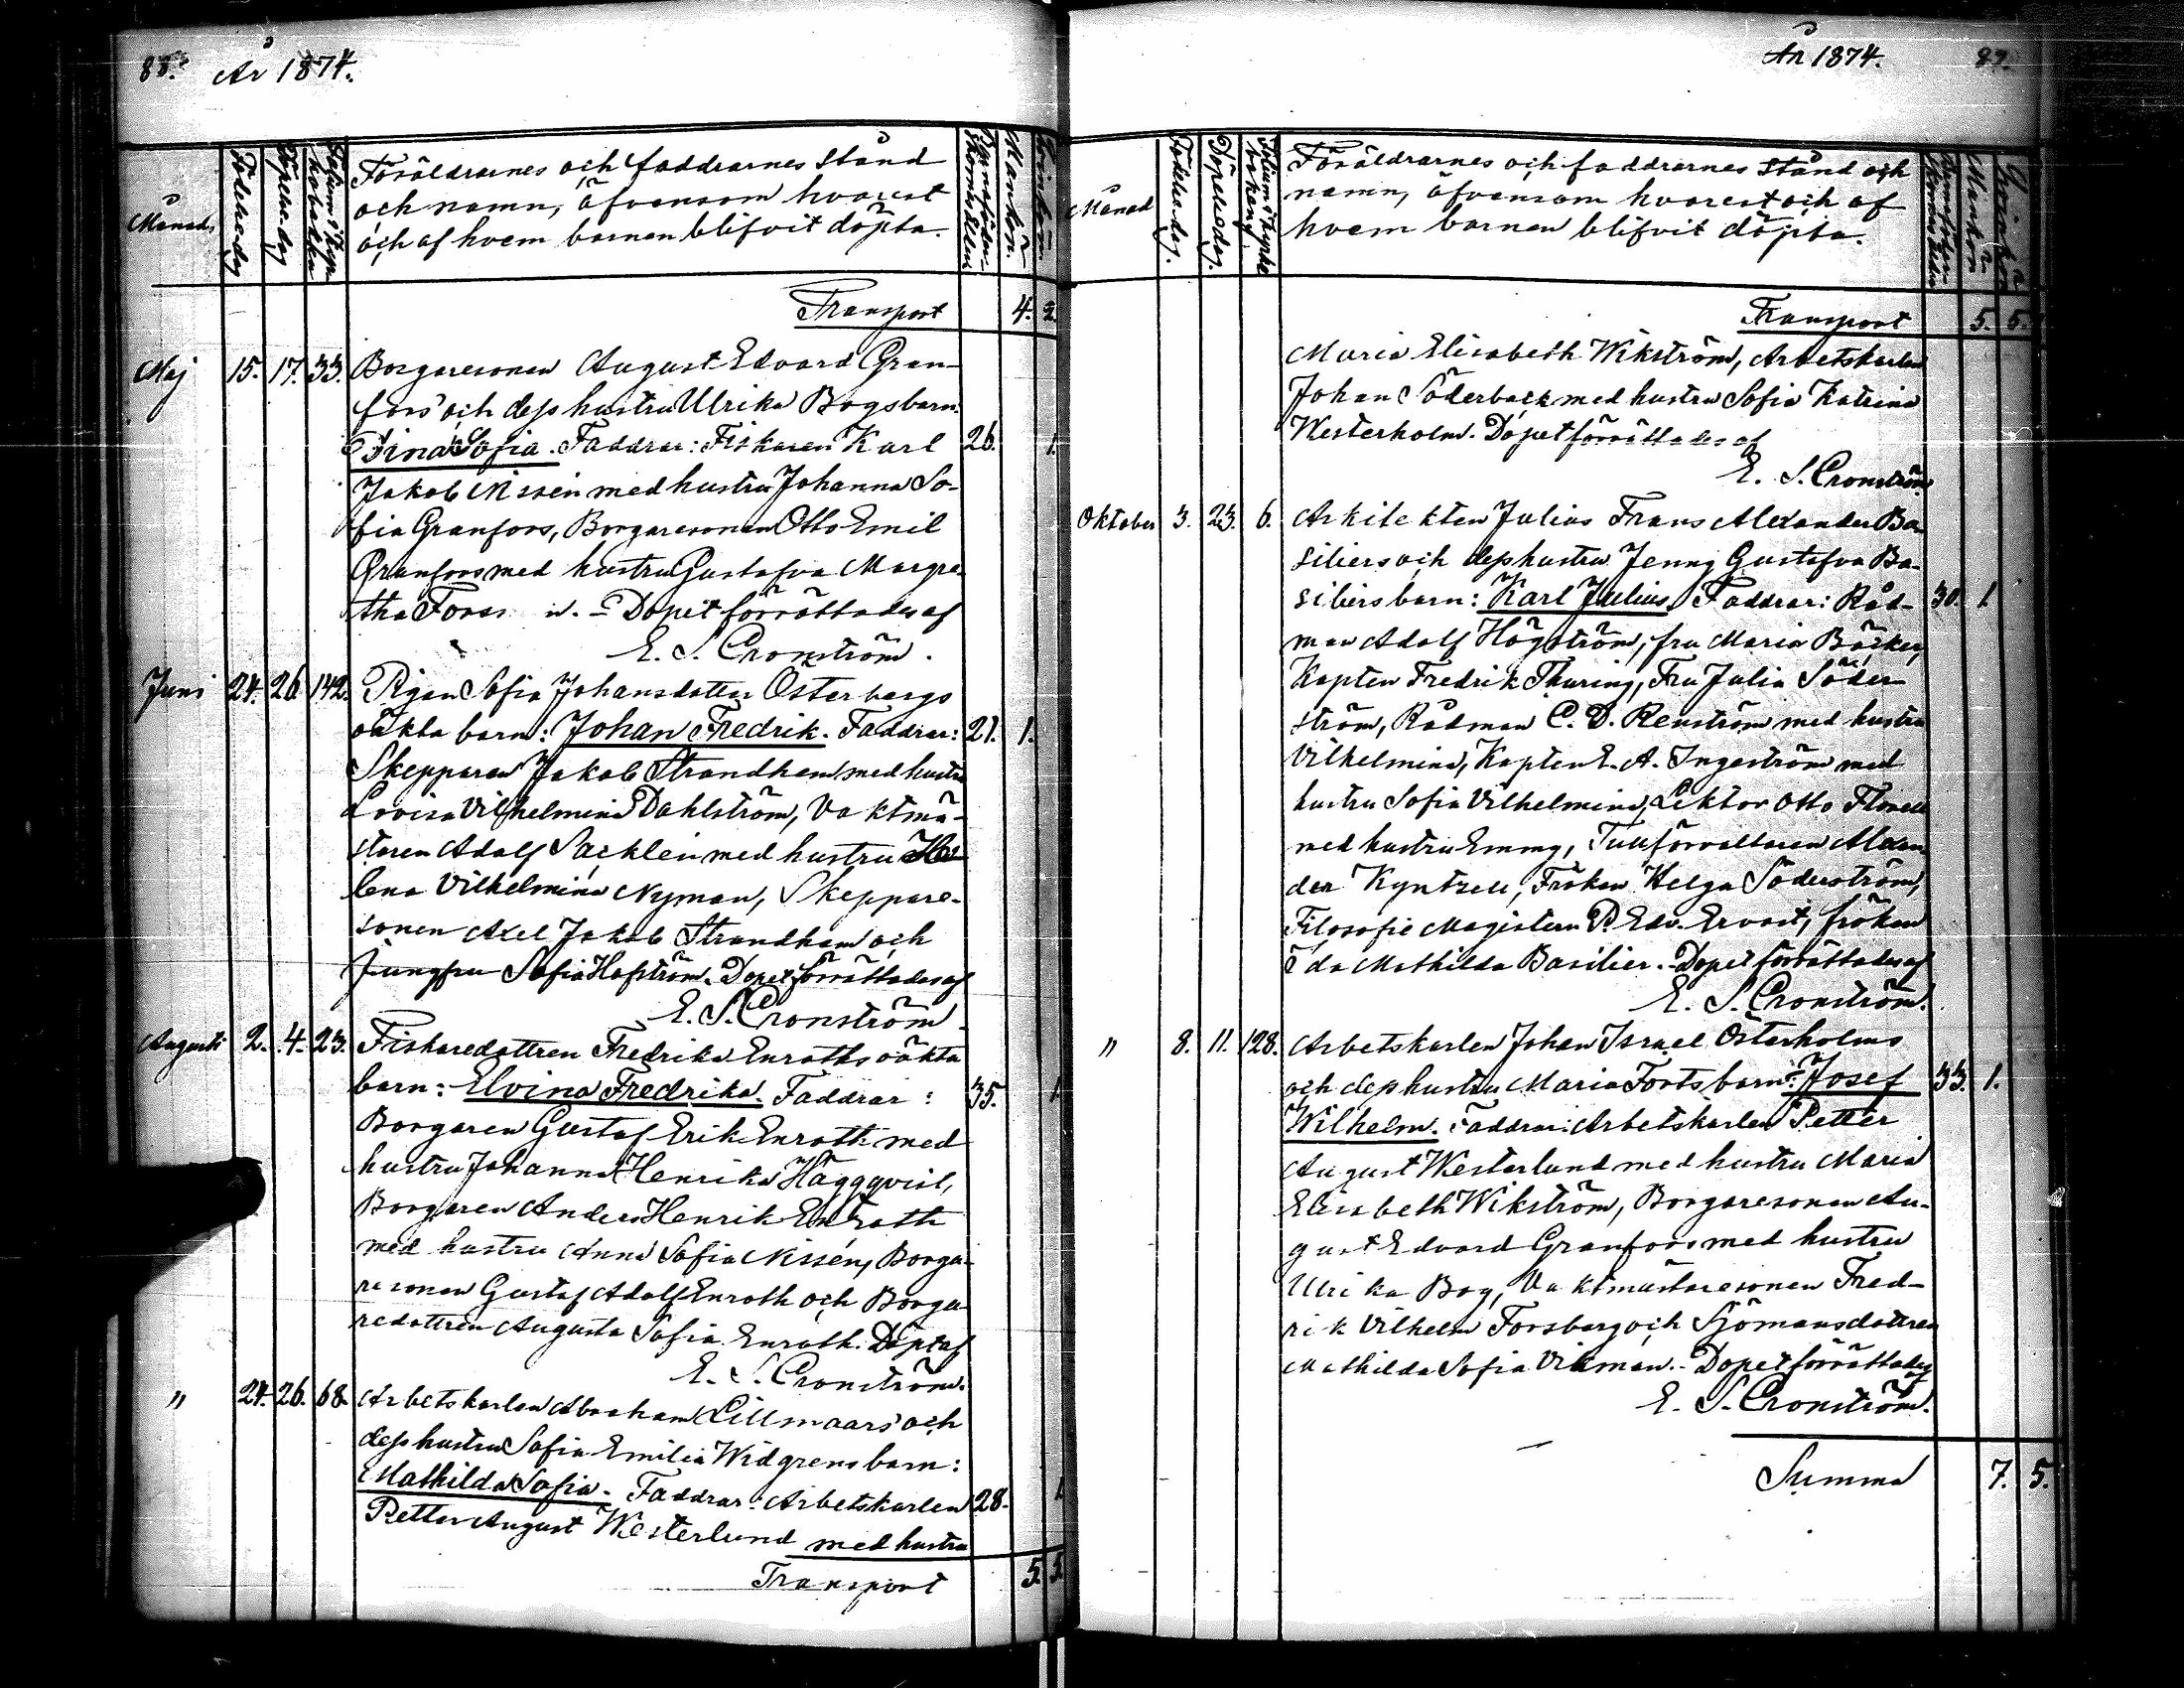 88. År 1874.
Månad.
Födelsedag
Döpelsedag
Folium i kyrkoboken
Föräldrarnes och faddrarnes stånd
och namn, äfvensom hvarest
och af hvem barnen blifvit döpta.
Mankön.
Qvinkön
Transport 4. 2.
Maj 15. 17. 33. Borgaresonen August Edvard Gran-
fors' och dess hustru Ulrika Bogs barn:
Tina Sofia. Faddrar: Fiskaren Karl 26. 1.
Jakob Nissén med hustru Johanna So-
fia Granfors, Borgaresonen Otto Emil
Granfors med hustru Gustafva Margre-
tha Forss. Dopet förrättades af
E. S. Cronström.
Juni 24. 26. 142. Pigan Sofia Johansdotter Österbergs
oäkta barn: Johan Fredrik. Faddrar: 21. 1.
Skepparen Jakob Strandhem med hustru
Lovisa Vilhelmina Dahlström, Vaktmä-
staren Adolf Sacklén med hustru He-
lena Vilhelmina Nyman, Skeppare-
sonen Axel Jakob Strandhem och
jungfru Sofia Hofström. Dopet förrättades af
E. S. Cronström
Augusti 2. 4. 23. Fiskaredottren Fredrika Enroths oäkta
barn: Elvina Fredrika. Faddrar: 35. 1.
Borgaren Gustaf Erik Enroth med
hustru Johanna Henrika Häggqvist,
Borgaren Anders Henrik Enroth
med hustru Anna Sofia Nissén, Borga-
resonen Gustaf Adolf Enroth och Borga-
redottren Augusta Sofia Enroth. Döpt af
E. S. Cronström.
" 24. 26. 68. Arbetskarlen Abraham Lillmaars' och
dess hustru Sofia Emilia Widgrens barn:
Mathilda Sofia. Faddrar: Arbetskarlen 28. 1
Petter August Westerlund med hustru
Transport 5. 5.
År 1874. 89.
Månad
Födelsedag.
Döpelsedag.
Folium i kyrkoboken
Föräldrarnes och faddrarnes stånd och
namn, äfvensom hvarest och af
hvem barnen blifvit döpta.
Mankön
Qvinkön
Transport 5. 5.
Maria Elisabeth Wikström, Arbetskarlen
Johan Söderback med hustru Sofia Katrina
Westerholm. Dopet förrättades af
E. S. Cronström
Oktober 3. 23. 6. Arkitekten Julius Frans Alexander Ba-
siliers och dess hustru Jenny Gustafva Ba-
siliers barn: Karl Julius. Faddrar: Råd- 30. 1.
man Adolf Högström, fru Maria Bäcker,
Kapten Fredrik Thuring, Fru Julia Söder-
ström, Rådman C. D. Renström med hustru
Vilhelmina, Kapten E. A. Ingeström med
hustru Sofia Vilhelmina, Lektor Otto Florell
med hustru Emmy, Tullförvaltaren Alexan-
der Kyntzell, Fröken Helga Söderström,
Filosofie Magistern P. Edv. Ervast, fröken
Ida Mathilda Basilier. Dopet förrättades af
E. S. Cronström.
" 8. 11. 128. Arbetskarlen Johan Israel Österholms
och dess hustru Maria Forts barn: Josef 33. 1.
Wilhelm. Faddrar: Arbetskarlen Petter
August Westerlund med hustru Maria
Elisabeth Wikström, Borgaresonen Au-
gust Edvard Granfors med hustru
Ulrika Bog, Vaktmästaresonen Fred-
rik Vilhelm Forsberg och Sjömansdottren
Mathilda Sofia Vikman. Dopet förrättades af
E. S. Cronström.
Summa 7. 5.